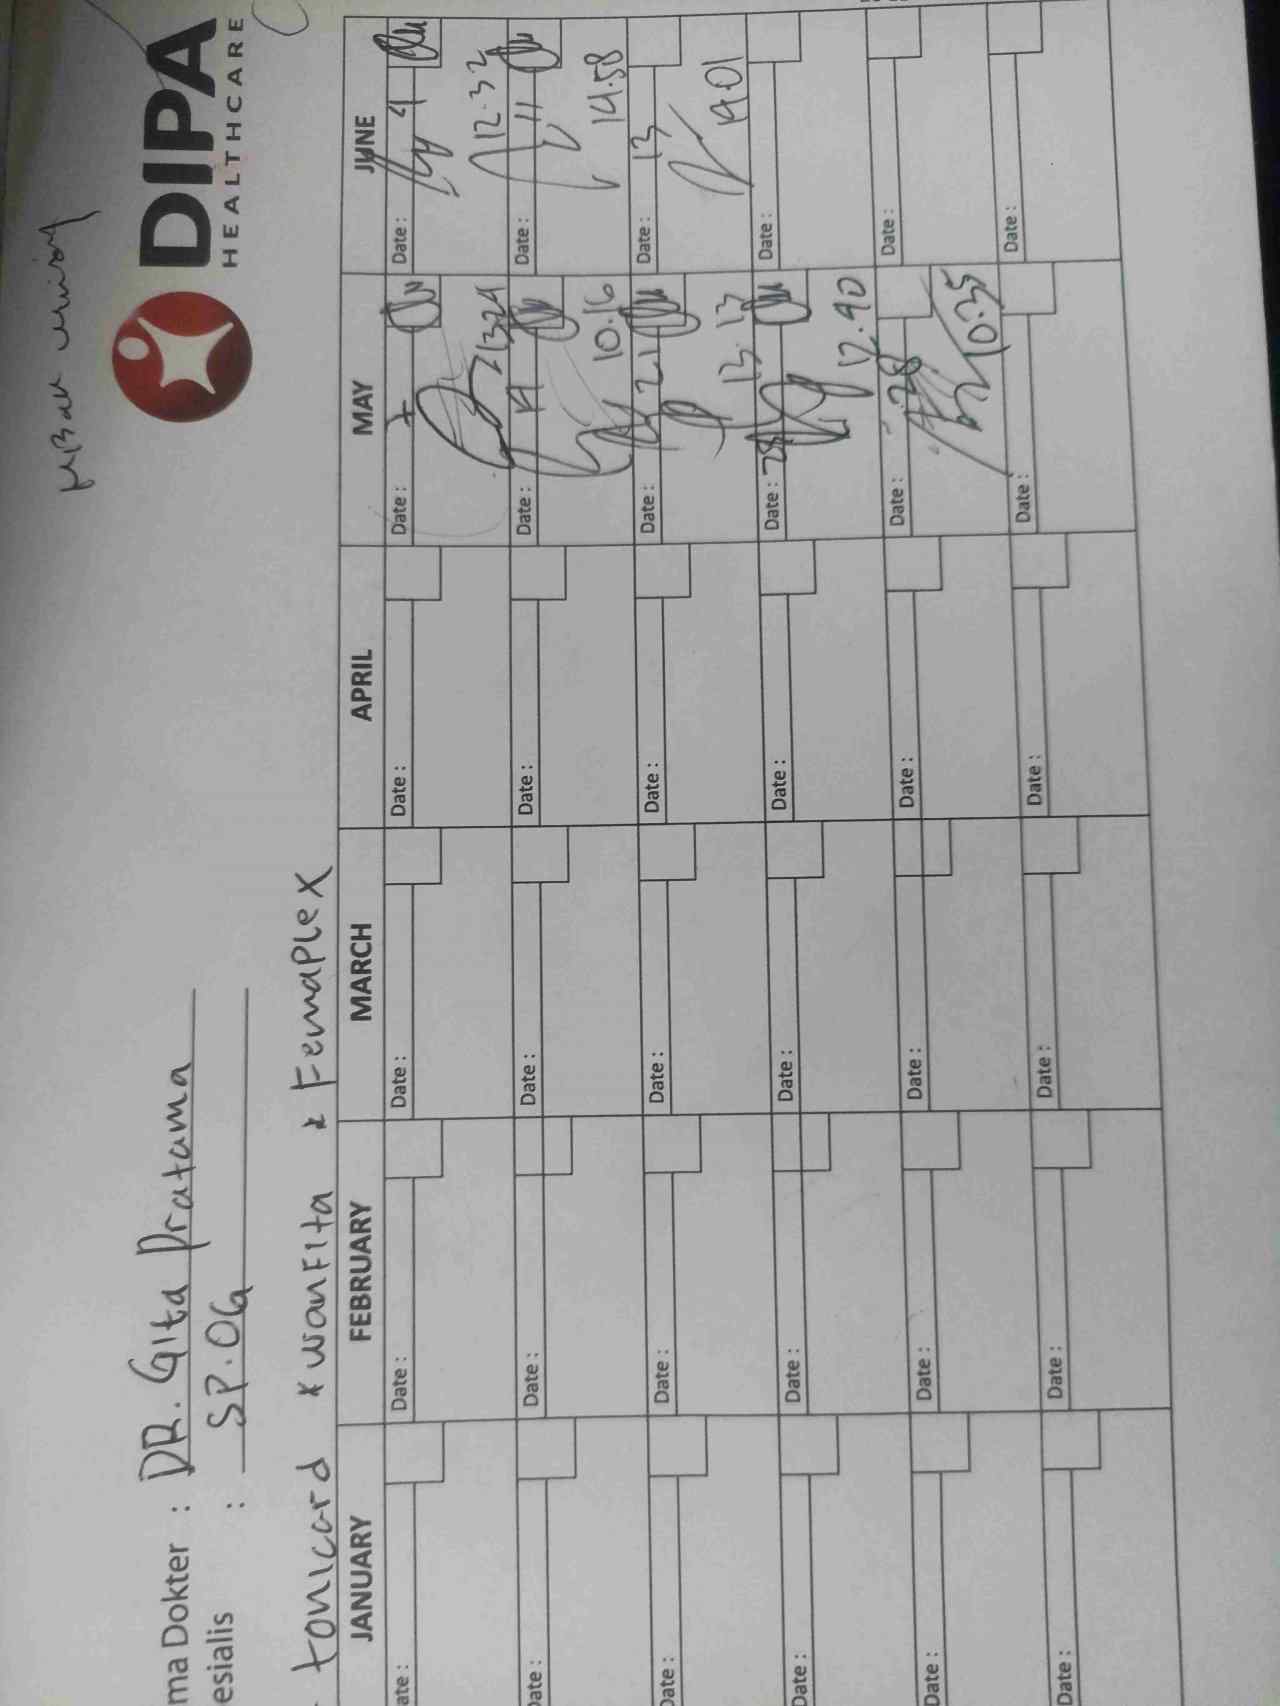 DIPA
HEALTHCARE
ma Dokter : DR. Gita Pratama
esialis : SP.OG
tonicard * wanFita * FemaPlex
JANUARY FEBRUARY MARCH APRIL MAY JUNE
ate : Date : Date : Date : Date : Date : 4
1324 12.32
Date : Date : Date : Date : Date : 19 Date : 11
10.16 14.58
Date : Date : Date : Date : Date : 21 Date : 13
13.13 19.01
Date : Date : Date : Date : Date : 28 Date :
12.40
Date : Date : Date : Date : Date : 28 Date :
10.35
Date : Date : Date : Date : Date : Date :